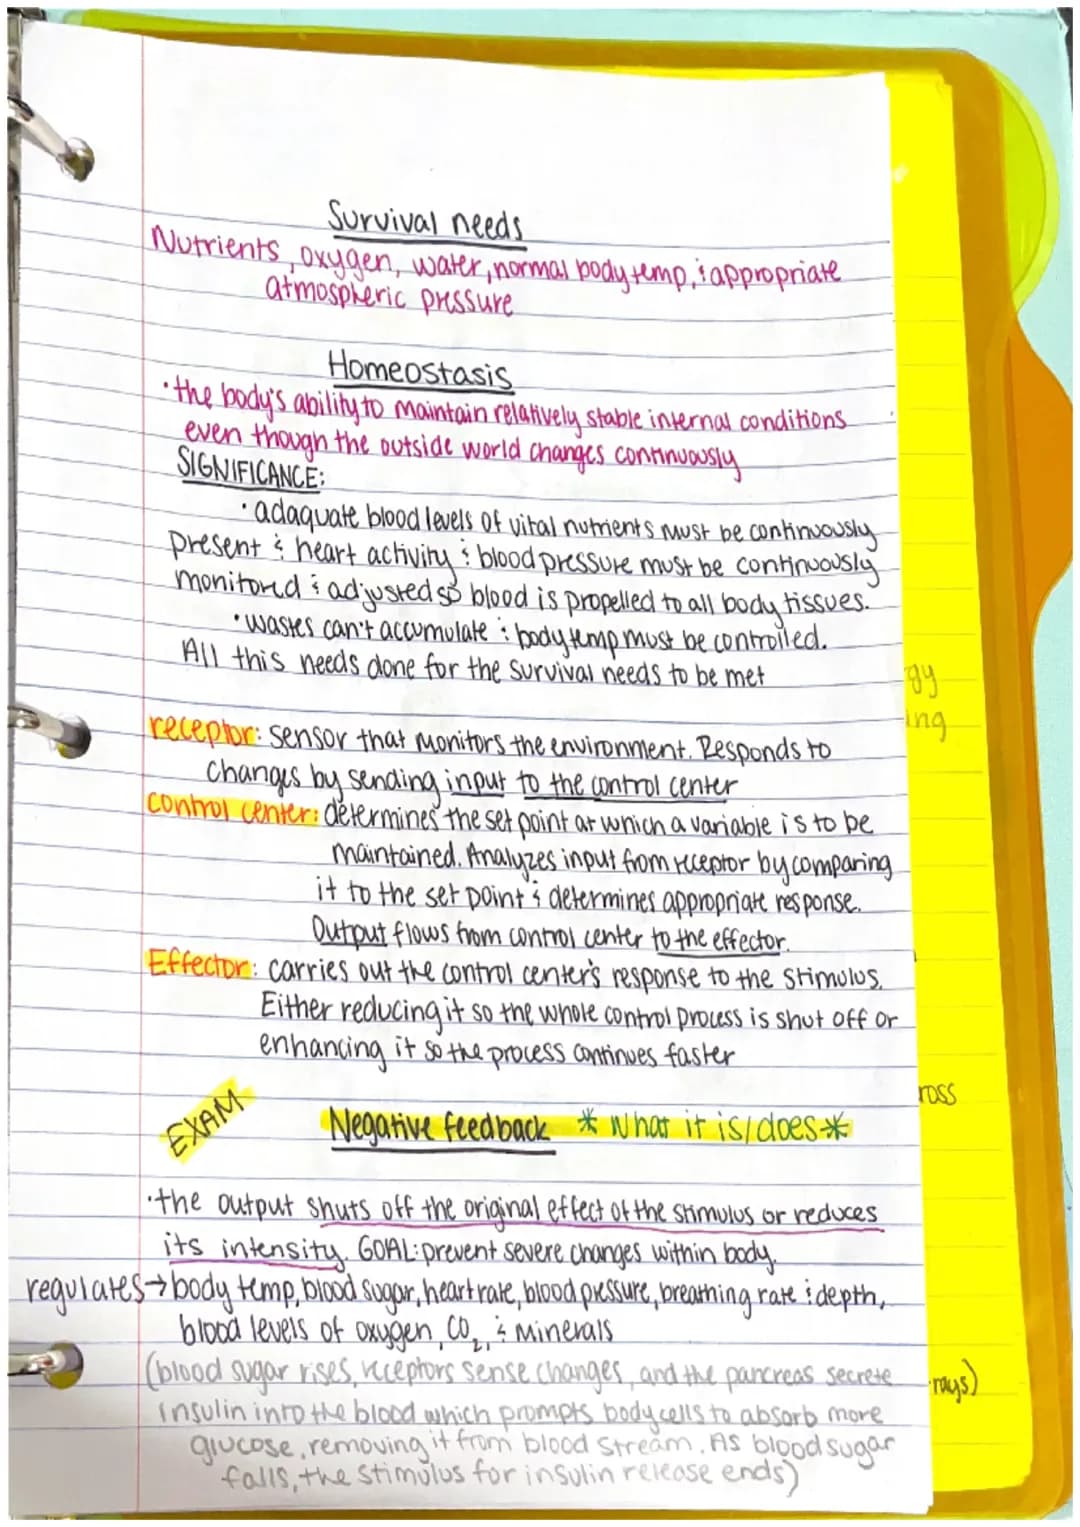 Survival needs
Nutrients, oxygen, water, normal body temp, & appropriate
atmospheric pressure
Homeostasis
• the body's ability to maintain relatively stable internal conditions
even though the outside world changes continuously
SIGNIFICANCE:
• adaquate blood levels of vital nutrients must be continuously
present & heart activity & blood pressure must be continuously
monitored & adjusted so blood is propelled to all body tissues.
• wastes can't accumulate & body temp must be controlled.
All this needs done for the survival needs to be met
gy
ing
receptor: sensor that monitors the environment. Responds to
changes by sending input to the control center
control center: determines the set point at which a variable is to be
maintained. Analyzes input from receptor by comparing
it to the set point & determines appropriate response.
Output flows from control center to the effector.
Effector: carries out the control center's response to the stimulus.
Either reducing it so the whole control process is shut off or
enhancing it so the process continues faster
ross
EXAM
Negative feedback * What it is/does *
• the output shuts off the original effect of the stimulus or reduces
its intensity. GOAL: prevent severe changes within body.
regulates → body temp, blood sugar, heart rate, blood pressure, breathing rate & depth,
blood levels of oxygen, CO₂, & minerals
(blood sugar rises, receptors sense changes, and the pancreas secrete
rays)
insulin into the blood which prompts body cells to absorb more
glucose, removing it from blood stream. As blood sugar
falls, the stimulus for insulin release ends)